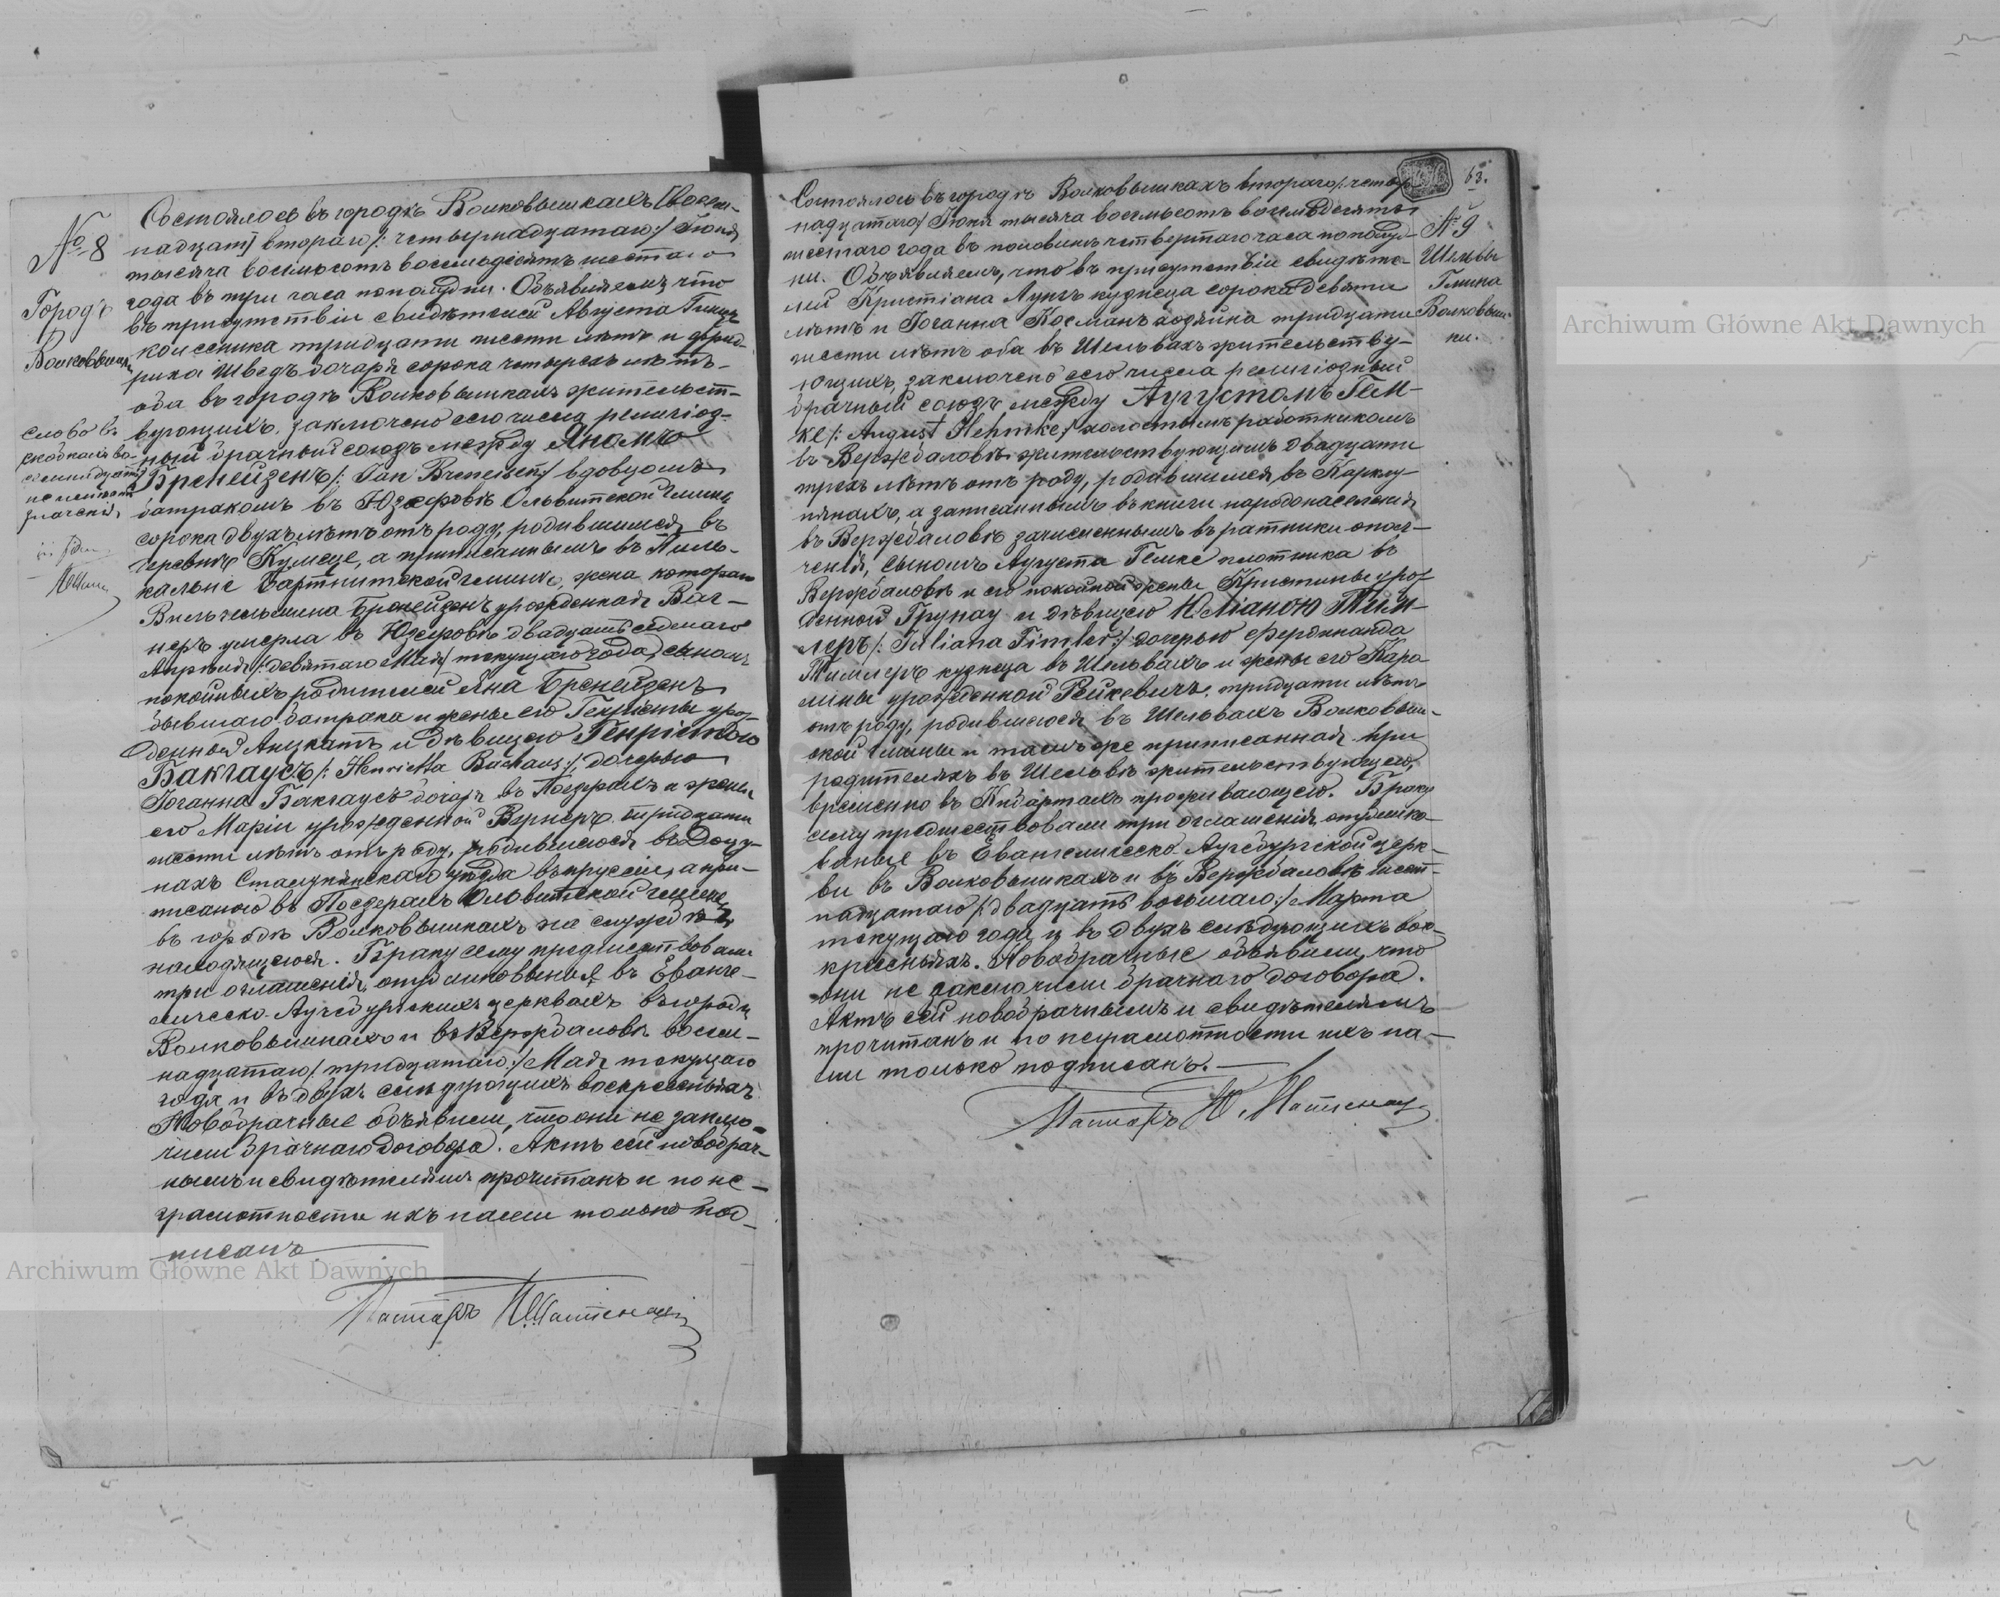 № 8
Городъ
Волковышки
слово въ
скобкахъ во-
семнадцат
не имѣетъ
значенія,
Состоялось въ городѣ Волковышкахъ [восем-
надцат] втораго /: четырнадцатаго :/ Іюня
тысяча восемьсотъ восемьдесятъ шестаго
года въ три часа пополудни. Объявляемъ что
въ присутствіи свидѣтелей Августа
колесника тридцати шести лѣтъ и Фрид-
рика Шведъ бочаря сорока четырехъ лѣтъ
оба въ городѣ Волковышкахъ жительст-
вующихъ, заключено сего числа религіоз-
ный брачный союзъ между Яномъ
Бренейзенъ /: Jan Breneisen :/ вдовцомъ
батракомъ въ Юзефовѣ Ольвитской гмины
сорока двухъ лѣтъ отъ роду, родившимся въ
деревнѣ а приписаннымъ въ Пиль-
кальне Бартнитской гмины, жена котораго
Вильгельмина Бренейзенъ урожденнаяВаг-
неръ умерла въ Юзефовѣ двадцать седьмаго
Апрѣля /: девятаго Мая :/ текущаго года, сыномъ
покойныхъ родителей Яна Бренейзенъ
бывшаго батрака и жены его Генріеты урож-
денной и дѣвицею Генріетою
Бакгаусъ /: Henrietta Backaus :/ дочерью
Іоганна Бакгаусъ бочаря въ Позерахъ и жены
его Маріи урожденной Вернеръ тридцати
шести лѣтъ отъ роду, родившеюся въ Доду-
нахъ Сталупянскаго уѣзда въ Пруссіи, а при-
писаною въ Посдерахъ Ольвитской гмины
въ городѣ Волковышкахъ на службѣ
находящеюся. Браку сему предшествовали
три оглашенія, опубликованыя въ Еванге-
лическо-Аугсбургскихъ церквахъ въ городѣ
Волковышкахъ и въ Вержболовѣ восем-
надцатаго /: тридцатаго :/ Мая текущаго
года и въ двухъ слѣдующихъ воскресеньяхъ.
Новобрачные объявили, что они не заклю-
чили брачнаго договора. Актъ сей новобрач-
нымъ и свидѣтелямъ прочитанъ и по не-
грамотности ихъ нами только под-
писанъ
Пасторъ
63.
№ 9
Шельвы
Гмина
Волковыш-
ки.
Состоялось въ городѣ Волковышкахъ втораго /: четыр-
надцатаго :/ Іюня тысяча восемьсотъ восемьдесятъ
шестаго года въ половинѣ четвертаго часа пополуд-
ни. Объявляемъ, что въ присутствіи свидѣте-
лей Кристіана Лунгъ кузнеца сорока девяти
лѣтъ и Іоганна Косманъ хозяина тридцати
шести лѣтъ оба въ Шельвахъ жительству-
ющихъ, заключено сего числа религіозный
брачный союзъ между Аугустомъ Гем-
ке /: August Hehmke :/ холостымъ работникомъ
въ Вержболовѣ жительствующимъ двадцати
трехъ лѣтъ отъ роду, родившимся въ Карклу-
пянахъ, а записаннымъ въ книги народонаселенія
въ Вержболовѣ зачисленнымъ въ ратники опол-
ченія, сыномъ Аугуста Гемке плотника въ
Вержболовѣ и его покойной жены Кристины урож-
денной Грунау и дѣвицею Юліаною Тим-
леръ /: Juliana Timler :/ дочерью Фердинанда
Тимлеръ кузнеца въ Шельвахъ и жены его Каро-
лины урожденной Рейковичъ, тридцати лѣтъ
отъ роду, родившеюся въ Шельвахъ Волковыш-
ской гмины и тамъ же приписанная при
родителяхъ въ Шельвѣ жительствующею,
временно въ Кибартахъ проживающею. Браку
сему предшествовали три оглашенія опублико-
ваныя въ Евангелическо Аугсбургской церк-
ви въ Волковышкахъ и въ Вержболовѣ шест-
надцатаго /: двадцать восьмаго :/ Марта
текущаго года и въ двухъ слѣдующихъ вос-
кресеньяхъ. Новобрачные объявили, что
они не заключили брачнаго договора.
Актъ сей новобрачнымъ и свидѣтелямъ
прочитанъ и по неграмотности ихъ на-
ми только подписанъ.
Пасторъ
Archiwum Główne Akt Dawnych
Archiwum Główne Akt Dawnych